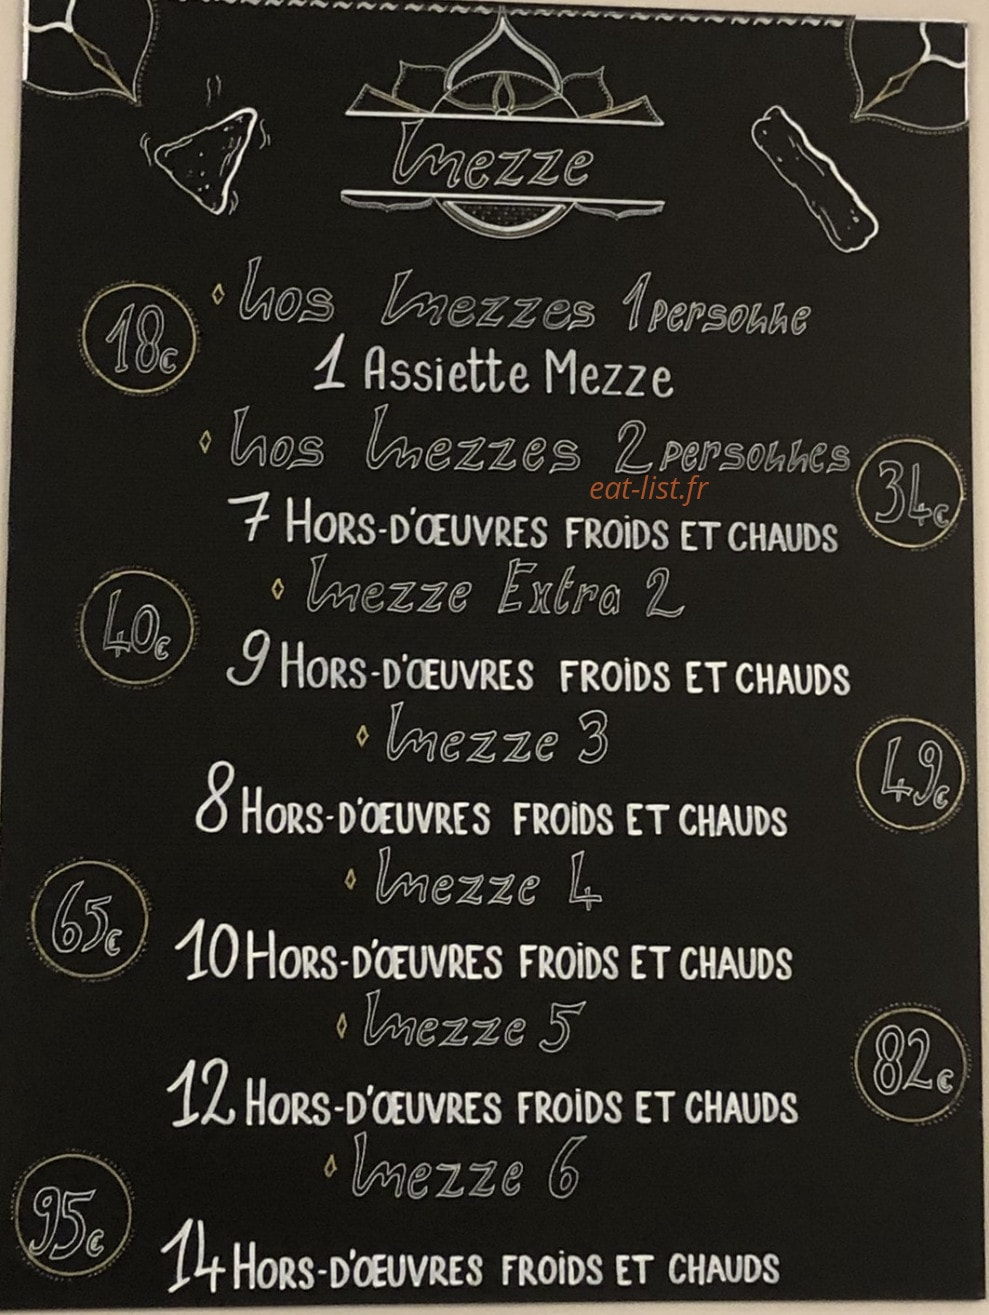 Mezze
Nos Mezzes 1 personne
18€
1 Assiette Mezze
Nos Mezzes 2 personnes
34€
eat-list.fr
7 HORS-D'ŒUVRES FROIDS ET CHAUDS
Mezze Extra 2
40€
9 HORS-D'ŒUVRES FROIDS ET CHAUDS
Mezze 3
49€
8 HORS-D'ŒUVRES FROIDS ET CHAUDS
Mezze 4
65€
10 HORS-D'ŒUVRES FROIDS ET CHAUDS
Mezze 5
82€
12 HORS-D'ŒUVRES FROIDS ET CHAUDS
Mezze 6
95€
14 HORS-D'ŒUVRES FROIDS ET CHAUDS